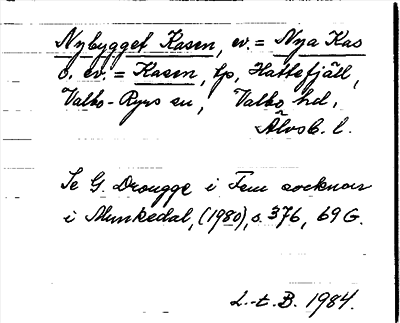 Nybygget Kasen, ev. = Nya Kas
o. ev. = Kasen, tp, Hattefjäll,
Valbo-Ryrs sn, Valbo hd,
Älvsb. l.
Se G. Drougge i Fem socknar
i Munkedal, (1980), s. 376, 69 G.
L.-t. B. 1984.